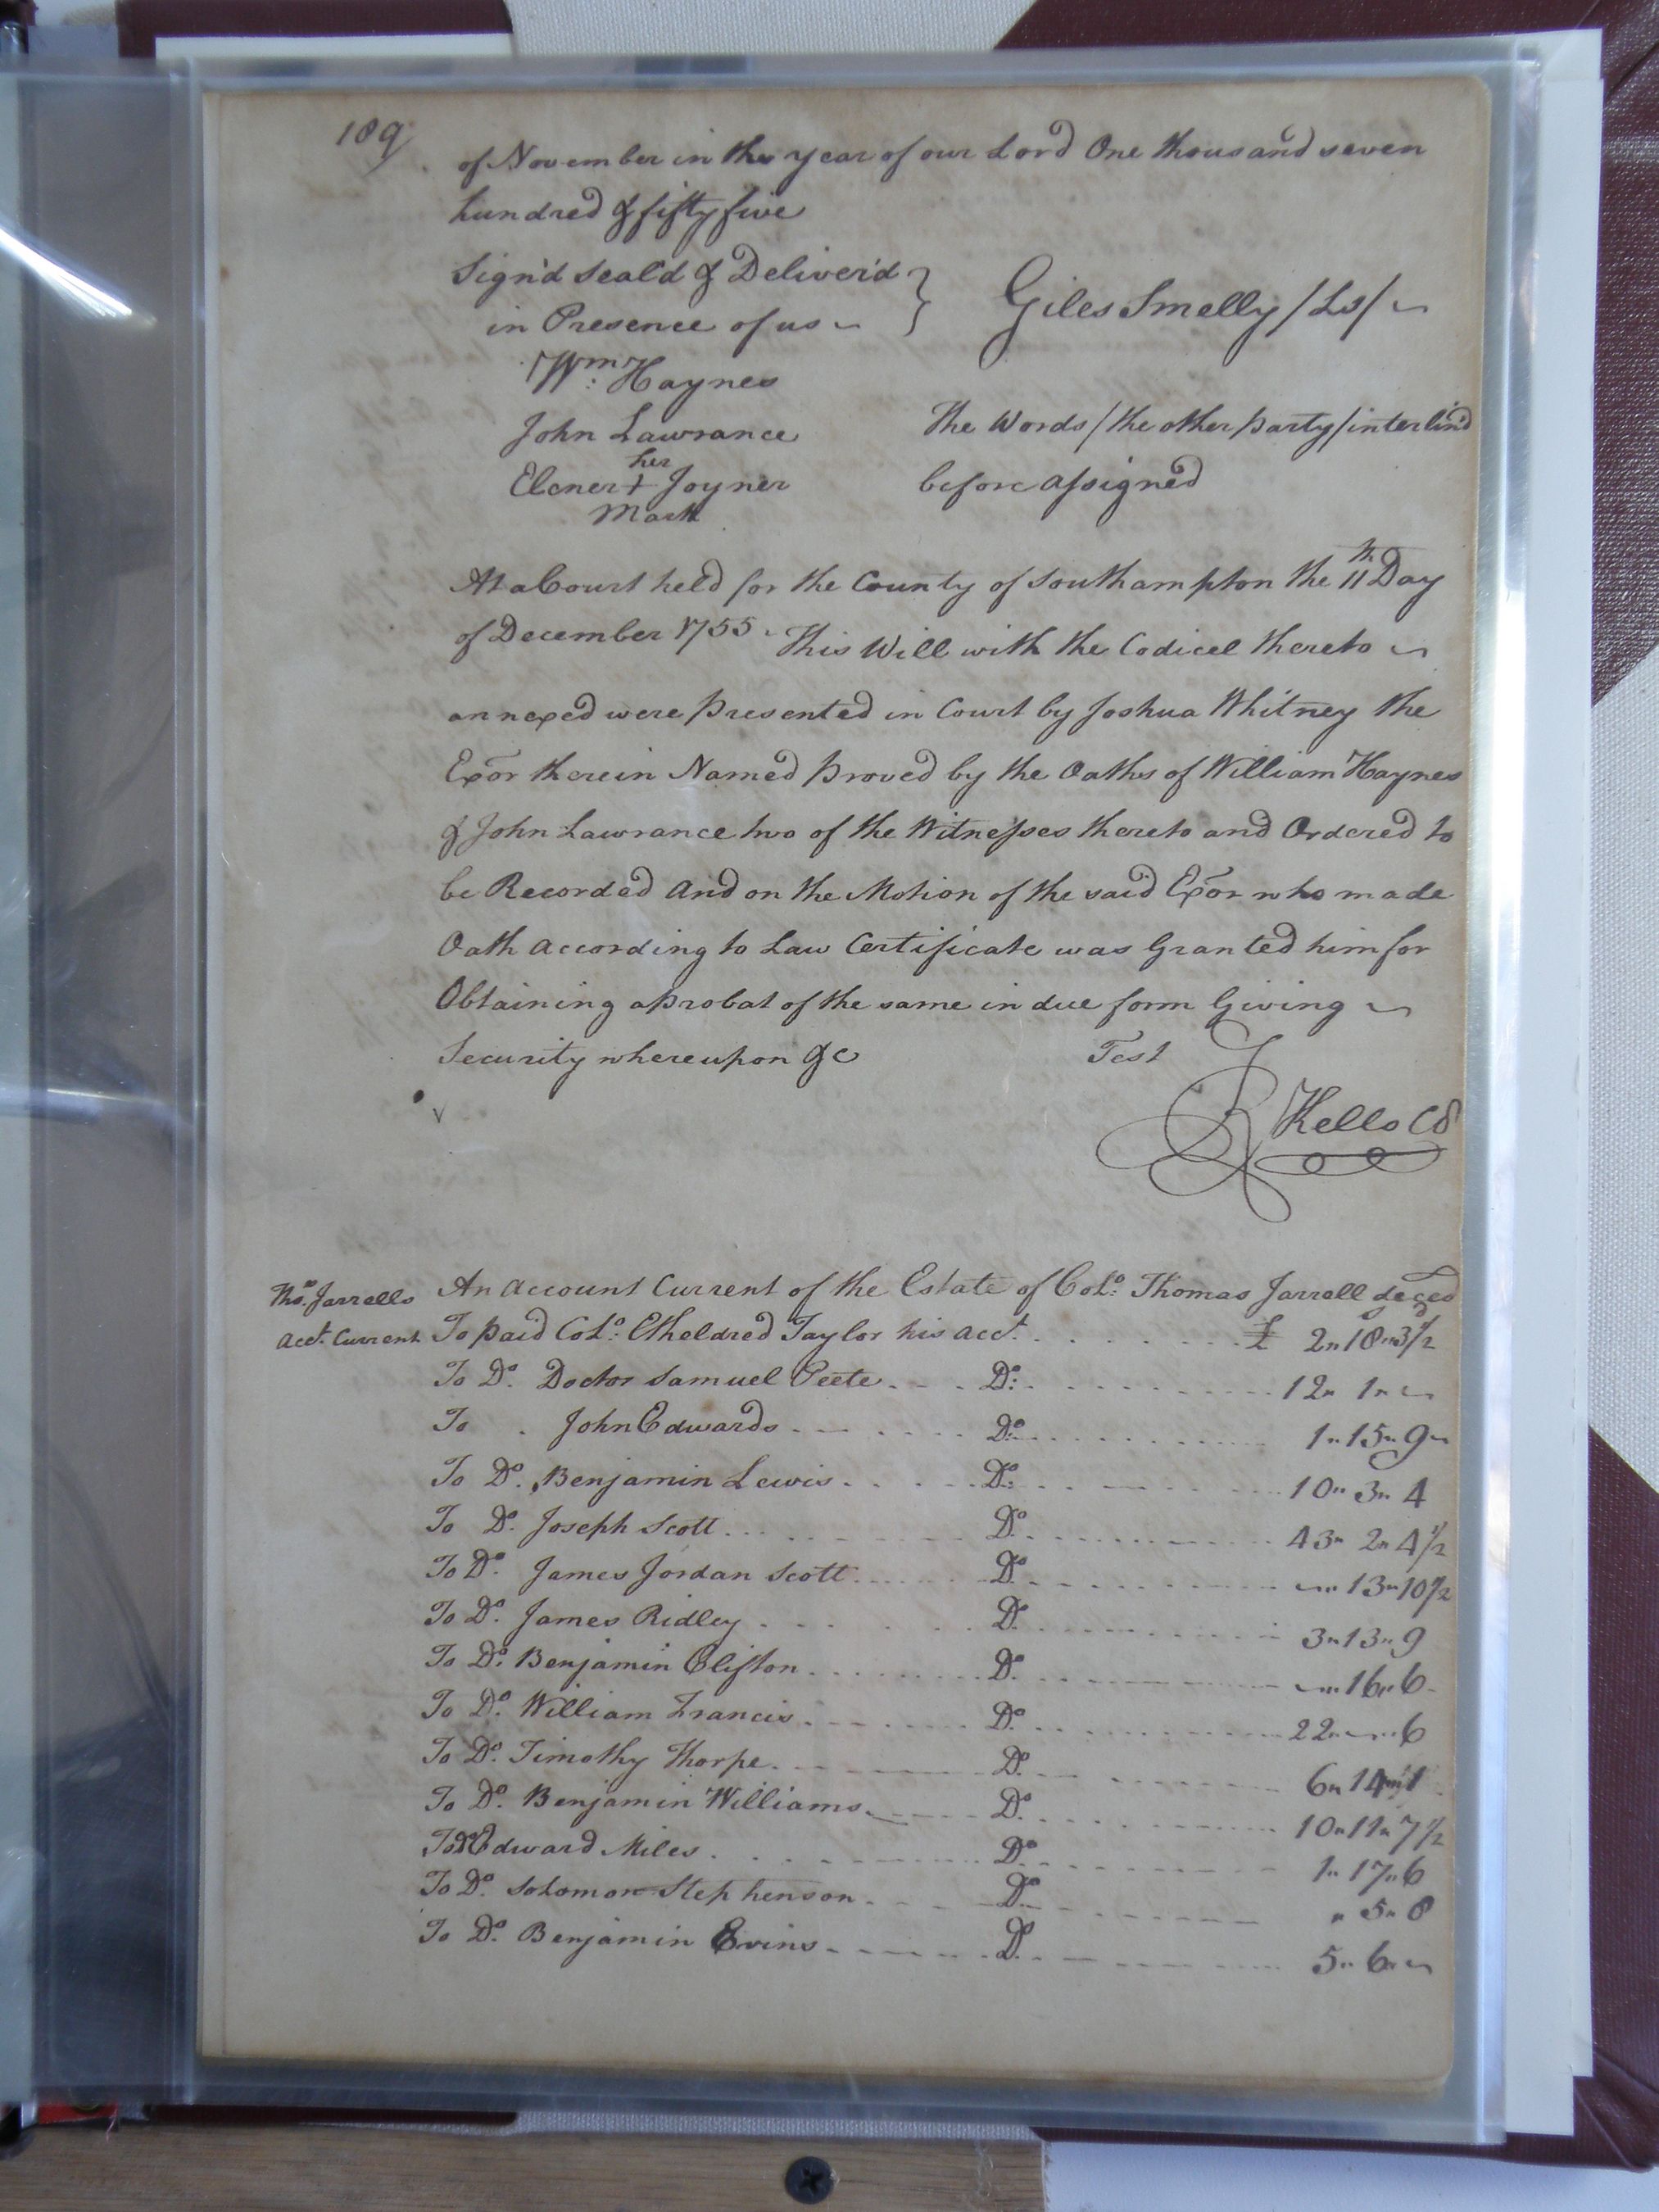 189
of November in the year of our Lord One thousand seven
hundred & fifty five
Sign'd Seal'd & Deliver'd
in Presence of us
Giles Smelly /LS/
Wm: Haynes
John Lawrance
The Words /the other party/ interlin'd
her
Elener + Joyner
before assigned
Mark
At a Court held for the County of Southampton the 11th Day
of December 1755. This Will with the Codicel thereto
annexed were presented in Court by Joshua Whitney the
Exor therein Named proved by the Oaths of William Haynes
& John Lawrance two of the Witnesses thereto and Ordered to
be Recorded And on the Motion of the said Exor who made
Oath according to Law Certificate was Granted him for
Obtaining a probat of the same in due form Giving
Security whereupon &c Test
R Kello CC
Thos. Jarrells An Account Current of the Estate of Colo: Thomas Jarrell deced
Acct. Current To paid Colo: Etheldred Taylor his acct. £ 2" 18" 3 1/2
To Do. Doctor Samuel Peete Do: 12" 1"
To John Edwards Do 1" 15" 9
To Do. Benjamin Lewis Do: 10" 3" 4
To Do. Joseph Scott Do. 43" 2" 4 1/2
To Do. James Jordan Scott Do " 13" 10 1/2
To Do. James Ridley Do. 3" 13" 9
To Do. Benjamin Clifton Do. " 16" 6
To Do. William Francis Do. 22" " 6
To Do. Timothy Thorpe Do. 6" 14" 1
To Do. Benjamin Williams Do. 10" 11" 7 1/2
To Do Edward Miles Do. 1" 17" 6
To Do. Solomon Stephenson Do. " 5" 8
To Do. Benjamin Evins Do. 5" 6"